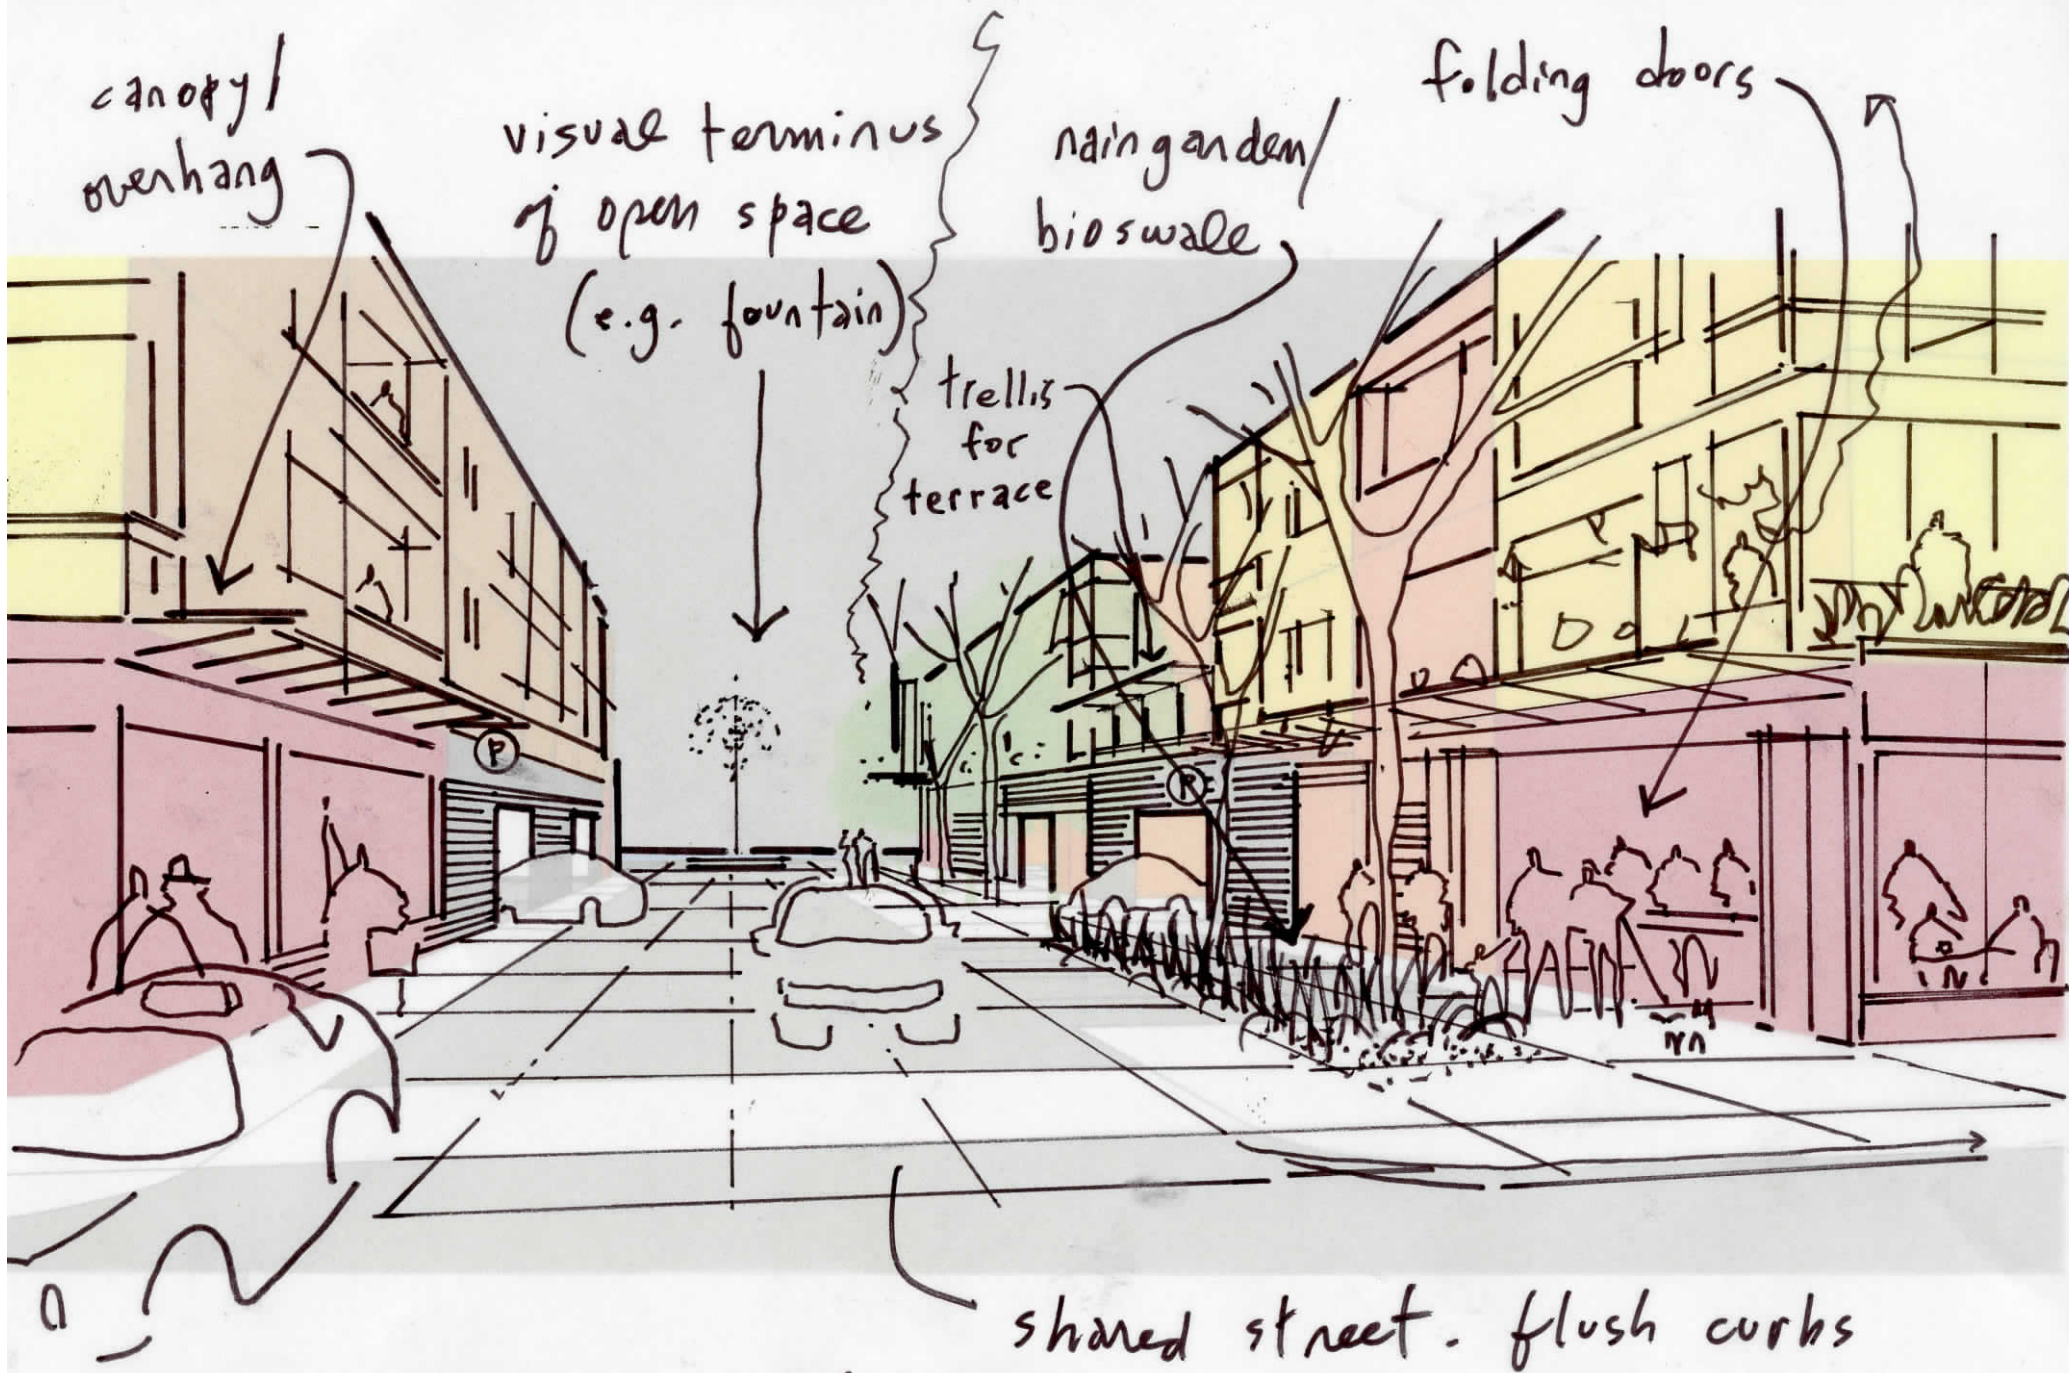 canopy/
overhang
visual terminus
of open space
(e.g. fountain)
raingarden/
bioswale
folding doors
trellis
for
terrace
P
P
shared street. flush curbs